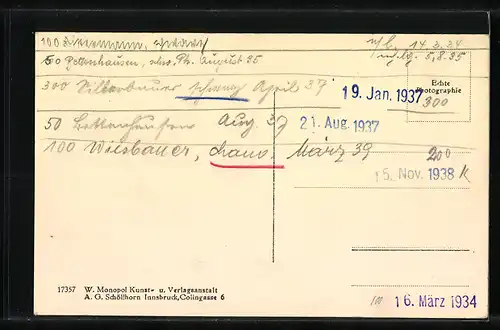 100
n/b. 14.3.34
5.8.35
50 Bettenhausen, Ph. August 35
300 Silberbauer schwarz April 37
19. Jan. 1937
Echte
Photographie
300
50 Bettenhausen Aug. 37
21. Aug. 1937
100 Wiesbauer, cham. März 39
200
15. Nov. 1938 K
17357
W. Monopol Kunst- u. Verlagsanstalt
A. G. Schöllhorn Innsbruck, Colingasse 6
100
16. März 1934